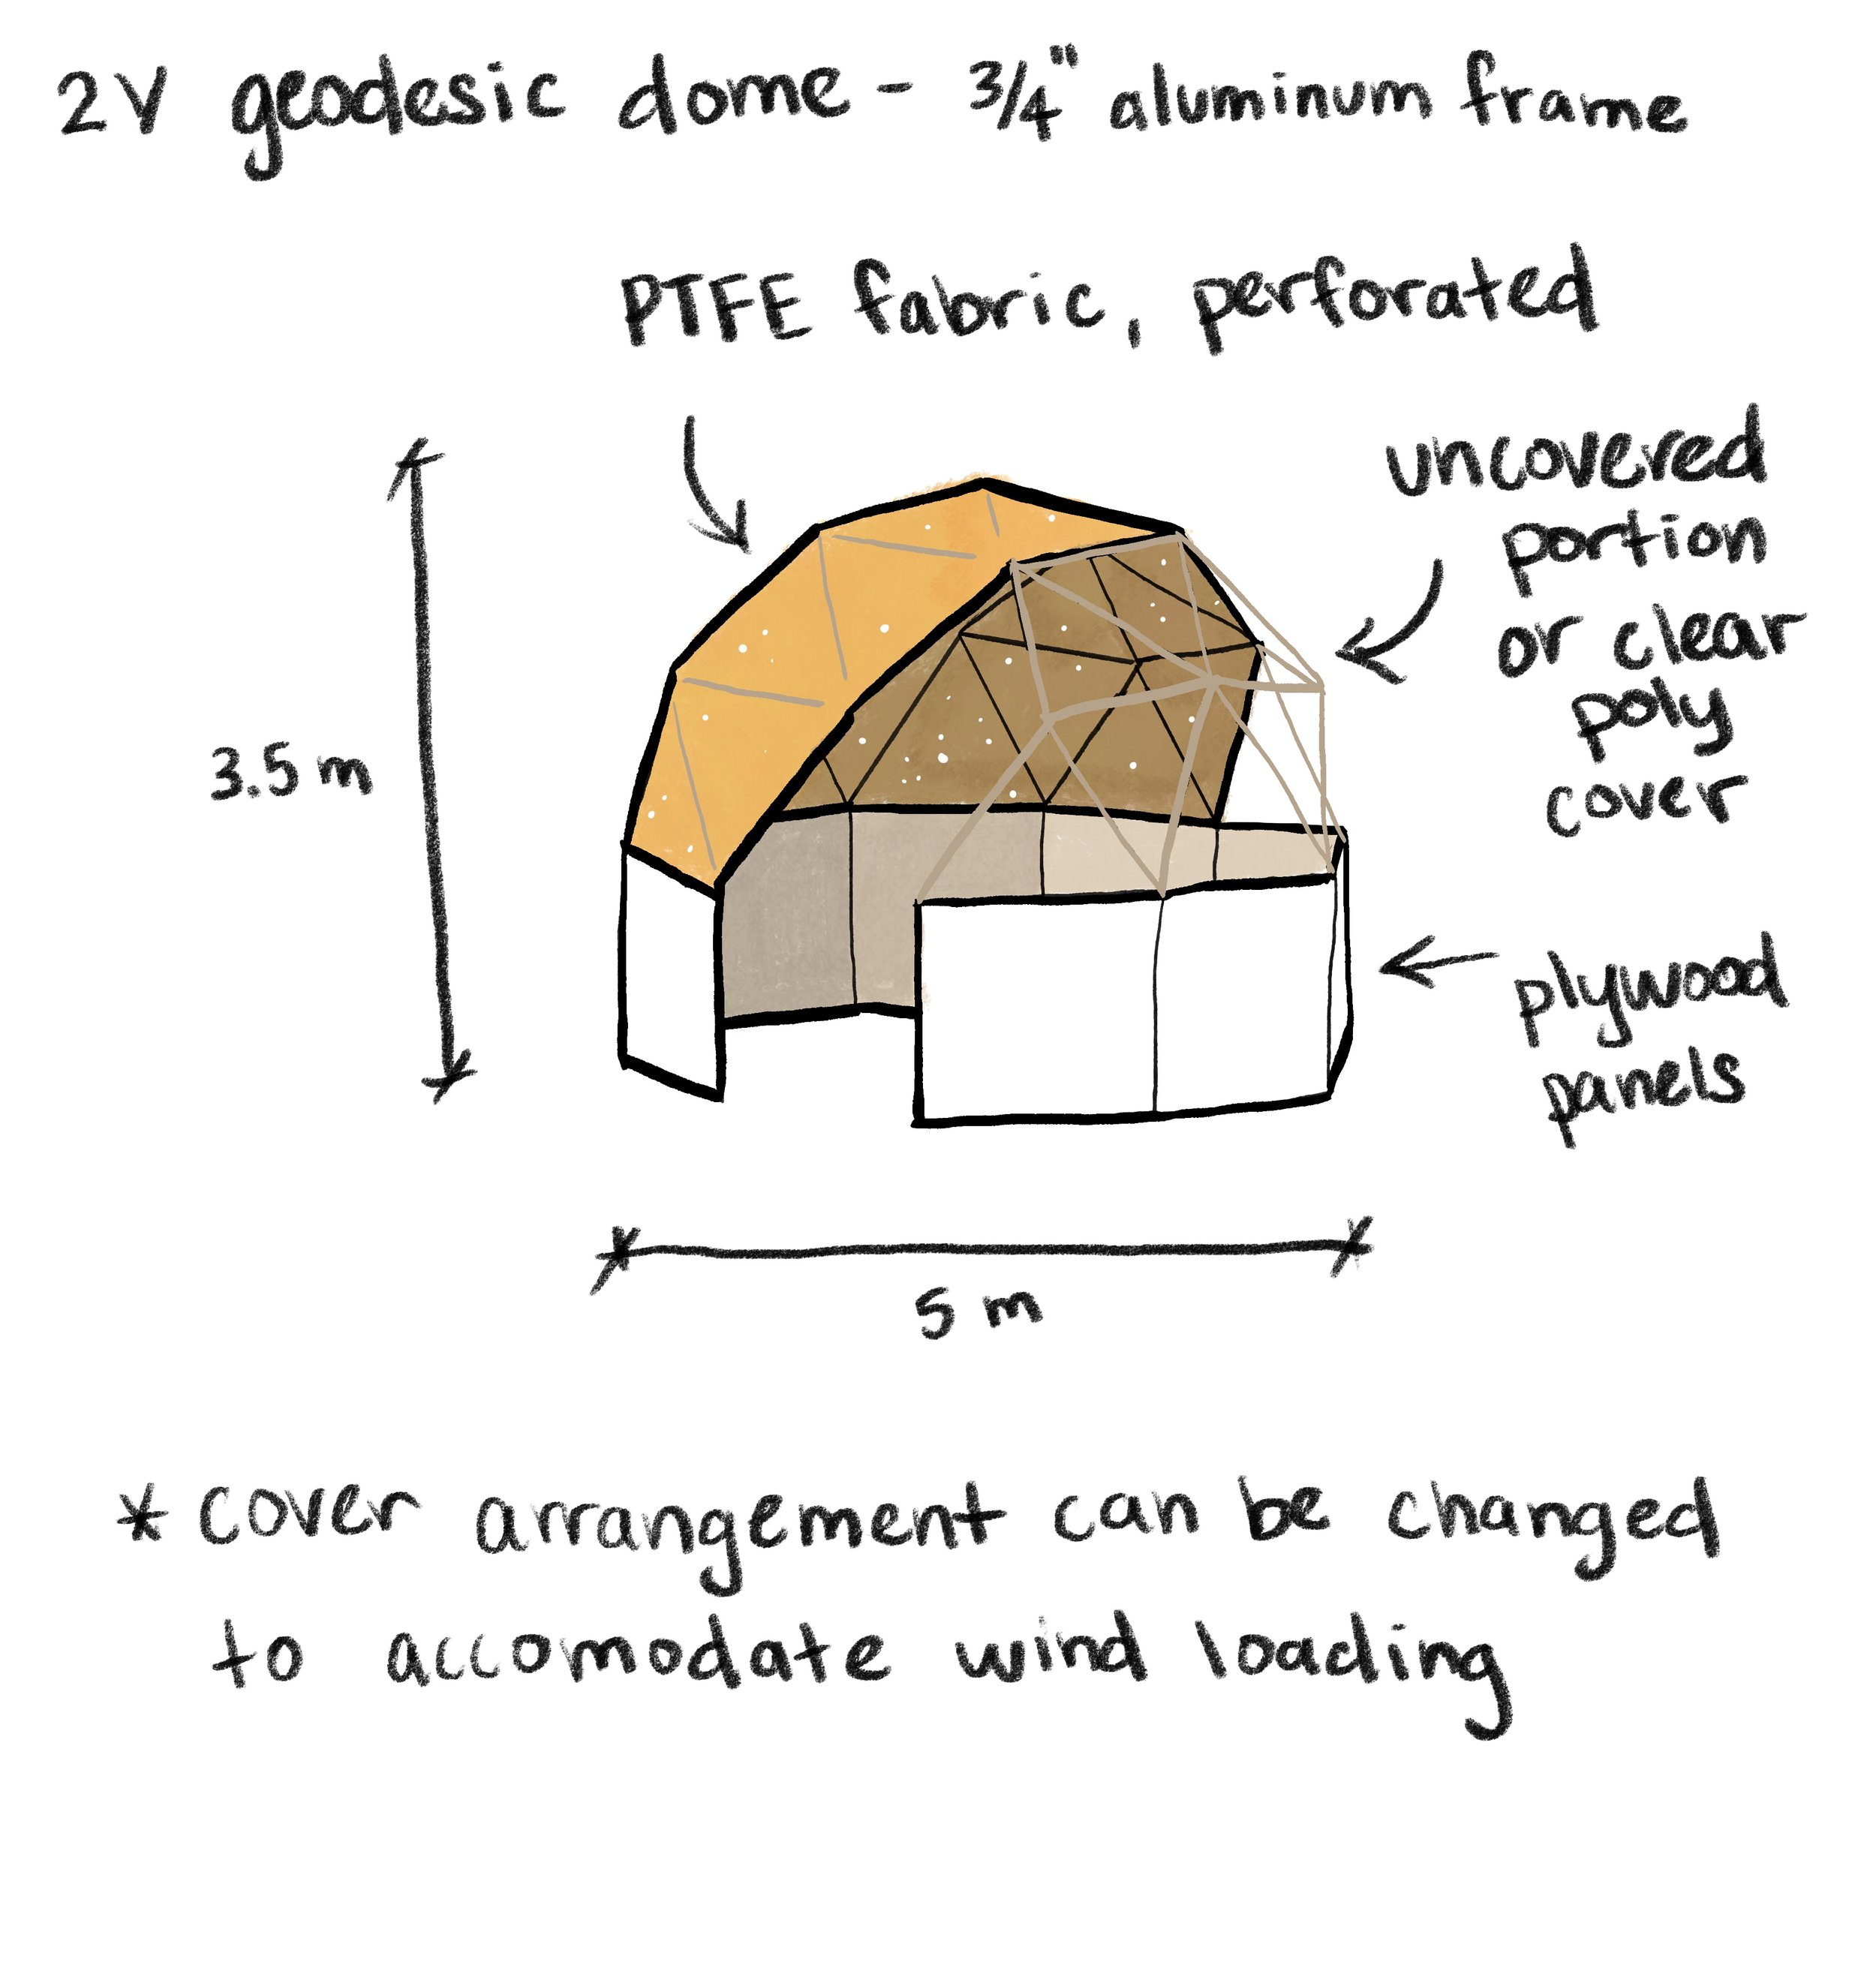 2V geodesic dome - 3/4" aluminum frame
PTFE fabric, perforated
uncovered
portion
or clear
poly
cover
3.5 m
plywood
panels
5 m
* cover arrangement can be changed
to accomodate wind loading